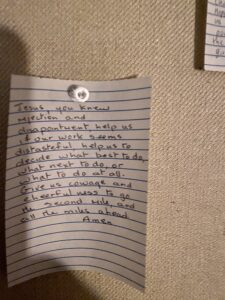 Jesus, you knew
rejection and
disapointment help us
if our work seems
distasteful help us to
decide what best to do,
what next to do, or
what to do at all.
Give us courage and
cheerfulness to go
the second mile, and
all the miles ahead
Amen